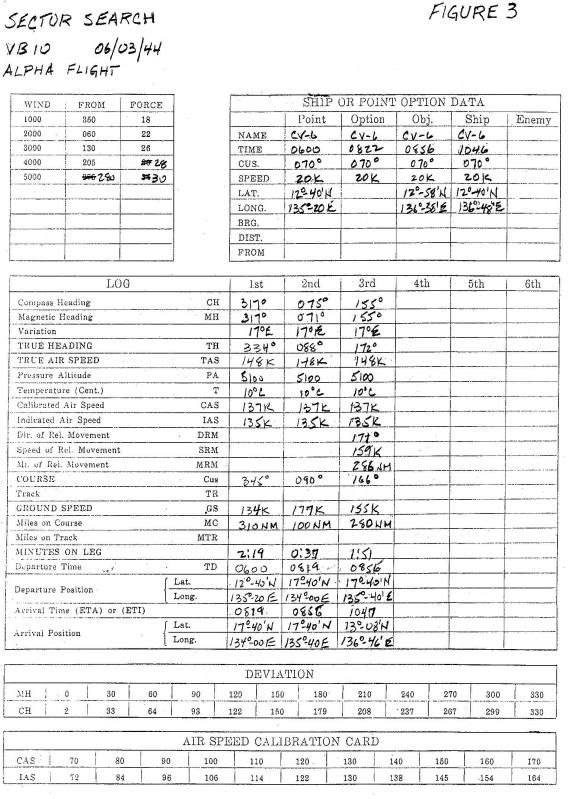 SECTOR SEARCH
FIGURE 3
VB10 06/03/44
ALPHA FLIGHT
WIND FROM FORCE
1000 350 18
2000 060 22
3000 130 26
4000 205 28
5000 280 30
SHIP OR POINT OPTION DATA
Point Option Obj. Ship Enemy
NAME CV-6 CV-6 CV-6 CV-6
TIME 0600 0822 0856 1046
CUS. 070° 070° 070° 070°
SPEED 20K 20K 20K 20K
LAT. 12°-40'N 12°-58'N 12°-40'N
LONG. 135°-20E 136°-38'E 136°-48'E
BRG.
DIST.
FROM
LOG 1st 2nd 3rd 4th 5th 6th
Compass Heading CH 317° 075° 155°
Magnetic Heading MH 317° 071° 155°
Variation 17°E 17°E 17°E
TRUE HEADING TH 334° 088° 172°
TRUE AIR SPEED TAS 148K 148K 148K
Pressure Altitude PA 5100 5100 5100
Temperature (Cent.) T 10°C 10°C 10°C
Calibrated Air Speed CAS 137K 137K 137K
Indicated Air Speed IAS 135K 135K 135K
Dir. of Rel. Movement DRM 171°
Speed of Rel. Movement SRM 159K
Mi. of Rel. Movement MRM 286NM
COURSE Cus 345° 090° 166°
Track TR
GROUND SPEED GS 134K 177K 155K
Miles on Course MC 310NM 100NM 280NM
Miles on Track MTR
MINUTES ON LEG 2:19 0:37 1:51
Departure Time TD 0600 0819 0856
Departure Position
Lat. 12°-40'N 17°40'N 17°40'N
Long. 135°-20E 134°00E 135°-40'E
Arrival Time (ETA) or (ETI) 0819 0856 1047
Arrival Position
Lat. 17°40'N 17°40'N 13°08'N
Long. 134°-00E 135°40E 136°-46'E
DEVIATION
MH 0 30 60 90 120 150 180 210 240 270 300 330
CH 2 33 64 93 122 150 179 208 237 267 299 330
AIR SPEED CALIBRATION CARD
CAS 70 80 90 100 110 120 130 140 150 160 170
IAS 72 84 96 106 114 122 130 138 145 154 164